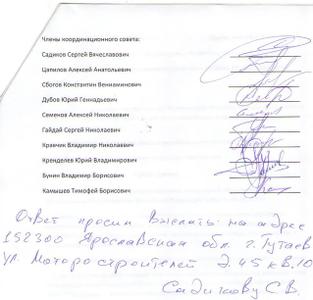 Члены координационного совета:
Садиков Сергей Вячеславович
Цапилов Алексей Анатольевич
Сбогов Константин Вениаминович
Дубов Юрий Геннадьевич
Семенов Алексей Николаевич
Гайдай Сергей Николаевич
Кравчик Владимир Николаевич
Кренделев Юрий Владимирович
Бунин Владимир Борисович
Камышев Тимофей Борисович
Ответ просим выслать: на адрес
152300 Ярославская обл. г. Тутаев
ул. Моторостроителей д. 45 кв. 10
Садикову С.В.